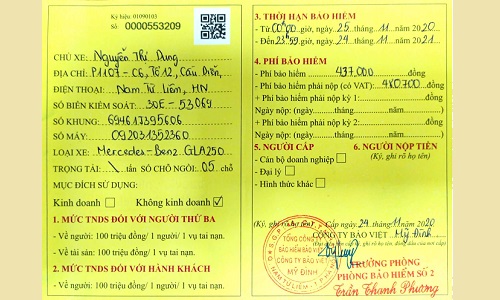 Ký hiệu: 01090103
Số 0000553209
CHỦ XE: Nguyễn Thị Dung
ĐỊA CHỈ: P1107 - C6, Tổ 12, Cầu Diễn,
ĐIỆN THOẠI: Nam Từ Liêm, HN
SỐ BIỂN KIỂM SOÁT: 30E - 53069
SỐ KHUNG: 69461739S606
SỐ MÁY: 092031352360
LOẠI XE: Mercedes-Benz GLA250
TRỌNG TẢI: \ tấn SỐ CHỖ NGỒI: 05 chỗ
MỤC ĐÍCH SỬ DỤNG:
Kinh doanh Không kinh doanh
1. MỨC TNDS ĐỐI VỚI NGƯỜI THỨ BA
- Về người: 100 triệu đồng/ 1 người/ 1 vụ tai nạn.
- Về tài sản: 100 triệu đồng/ 1 vụ tai nạn.
2. MỨC TNDS ĐỐI VỚI HÀNH KHÁCH
- Về người: 100 triệu đồng/ 1 người/ 1 vụ tai nạn.
3. THỜI HẠN BẢO HIỂM
- Từ 00h00 giờ, ngày 25 tháng 11 năm 2020
- Đến 23h59 giờ, ngày 24 tháng 11 năm 2021
4. PHÍ BẢO HIỂM
- Phí bảo hiểm 437,000 đồng
- Phí bảo hiểm phải nộp (có VAT): 480,700 đồng
+ Phí bảo hiểm phải nộp kỳ 1: đồng
Ngày nộp: (trong trường hợp nộp phí kỳ 1)
+ Phí bảo hiểm phải nộp kỳ 2: đồng
Ngày nộp:
5. NGƯỜI CẤP 6. NGƯỜI NỘP TIỀN
- Cán bộ doanh nghiệp (Ký, ghi rõ họ tên)
- Đại lý
- Hình thức khác
(Ký, ghi rõ họ tên) Cấp ngày 24 tháng 11 năm 2020
CÔNG TY BẢO VIỆT Mỹ Đình
TỔNG CÔNG TY
BẢO HIỂM BẢO VIỆT
CÔNG TY BẢO VIỆT
MỸ ĐÌNH
Q. NAM TỪ LIÊM - T.P HÀ NỘI
TRƯỞNG PHÒNG
PHÒNG BẢO HIỂM SỐ 2
Trần Thanh Phương